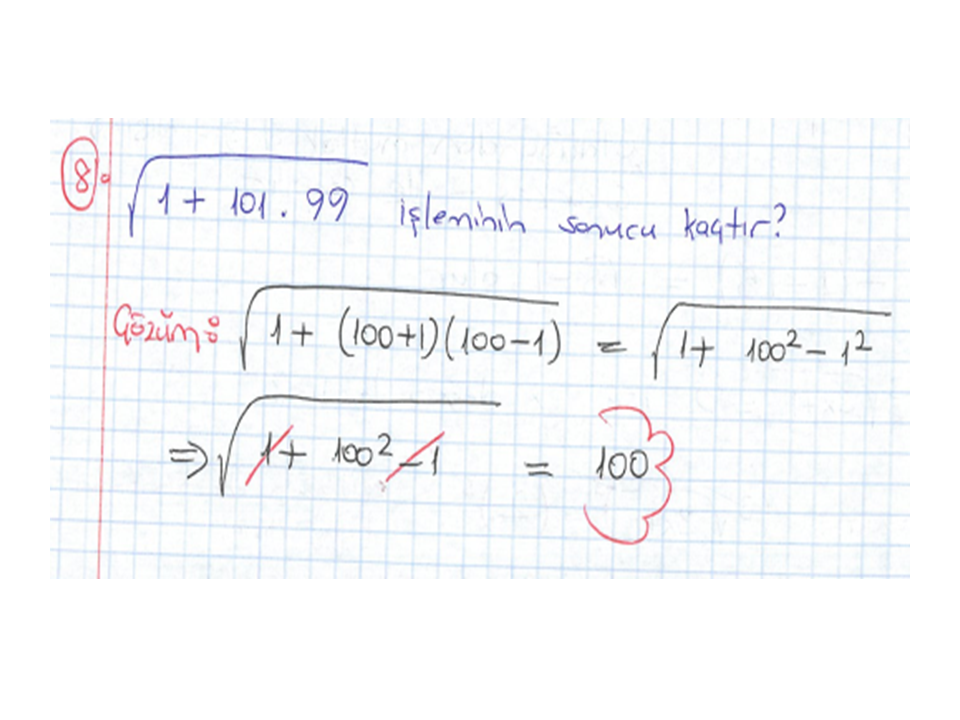 8. √(1 + 101 . 99) işleminin sonucu kaçtır?
Çözüm: √(1 + (100+1)(100-1)) = √(1 + 100² - 1²)
⇒ √(1 + 100² - 1) = 100